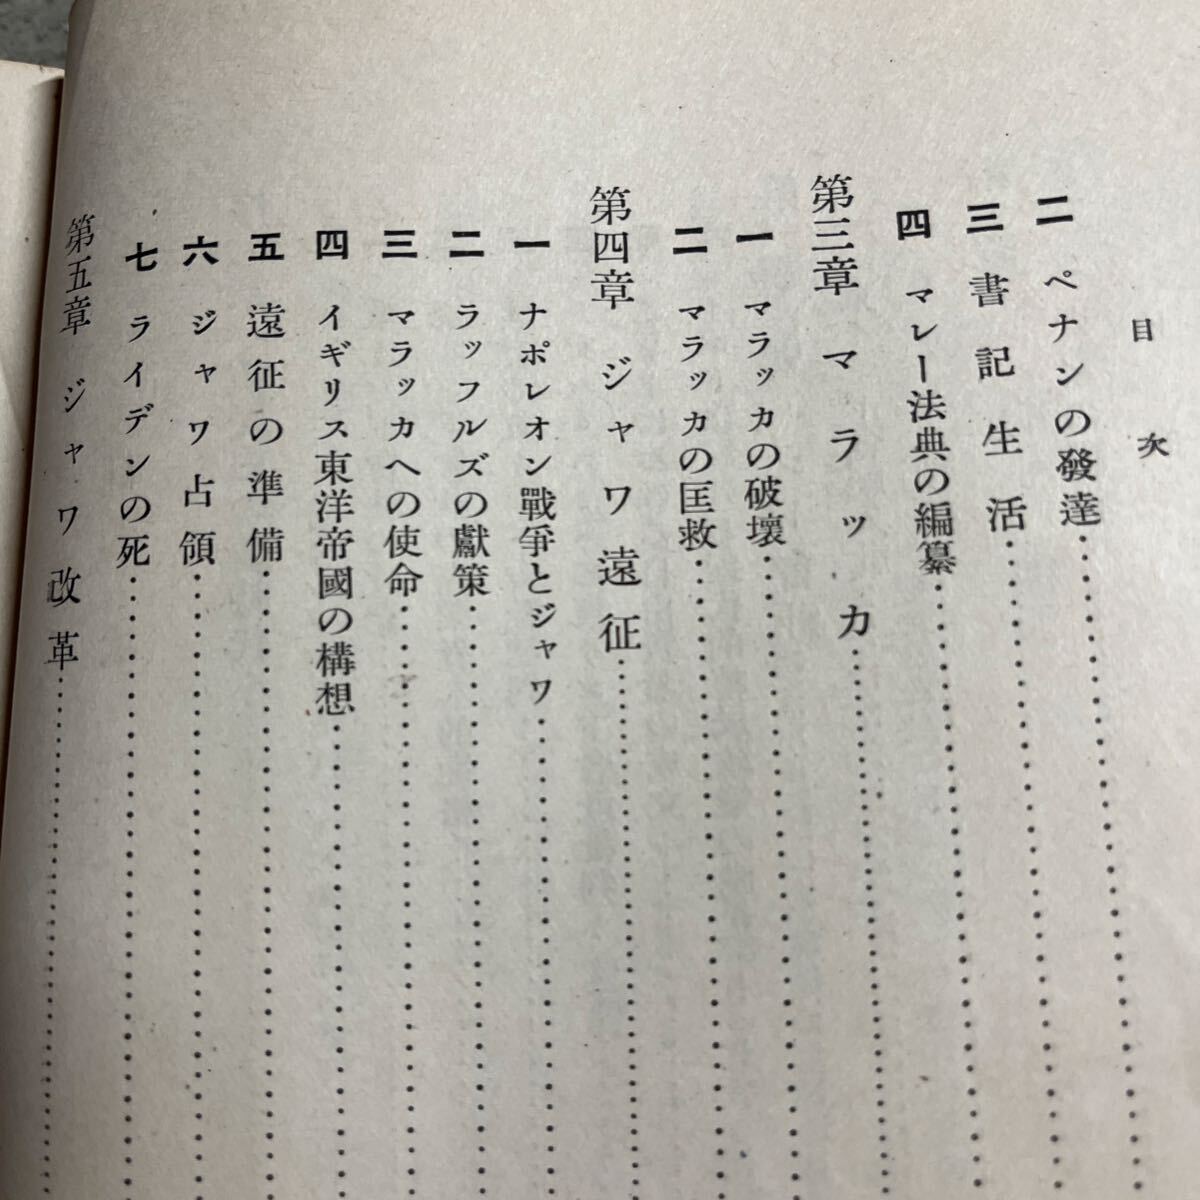 目次
二 ペナンの發達
三 書記生活
四 マレー法典の編纂
第三章 マラッカ
一 マラッカの破壞
二 マラッカの匡救
第四章 ジャワ遠征
一 ナポレオン戰爭とジャワ
二 ラッフルズの獻策
三 マラッカへの使命
四 イギリス東洋帝國の構想
五 遠征の準備
六 ジャワ占領
七 ライデンの死
第五章 ジャワ改革